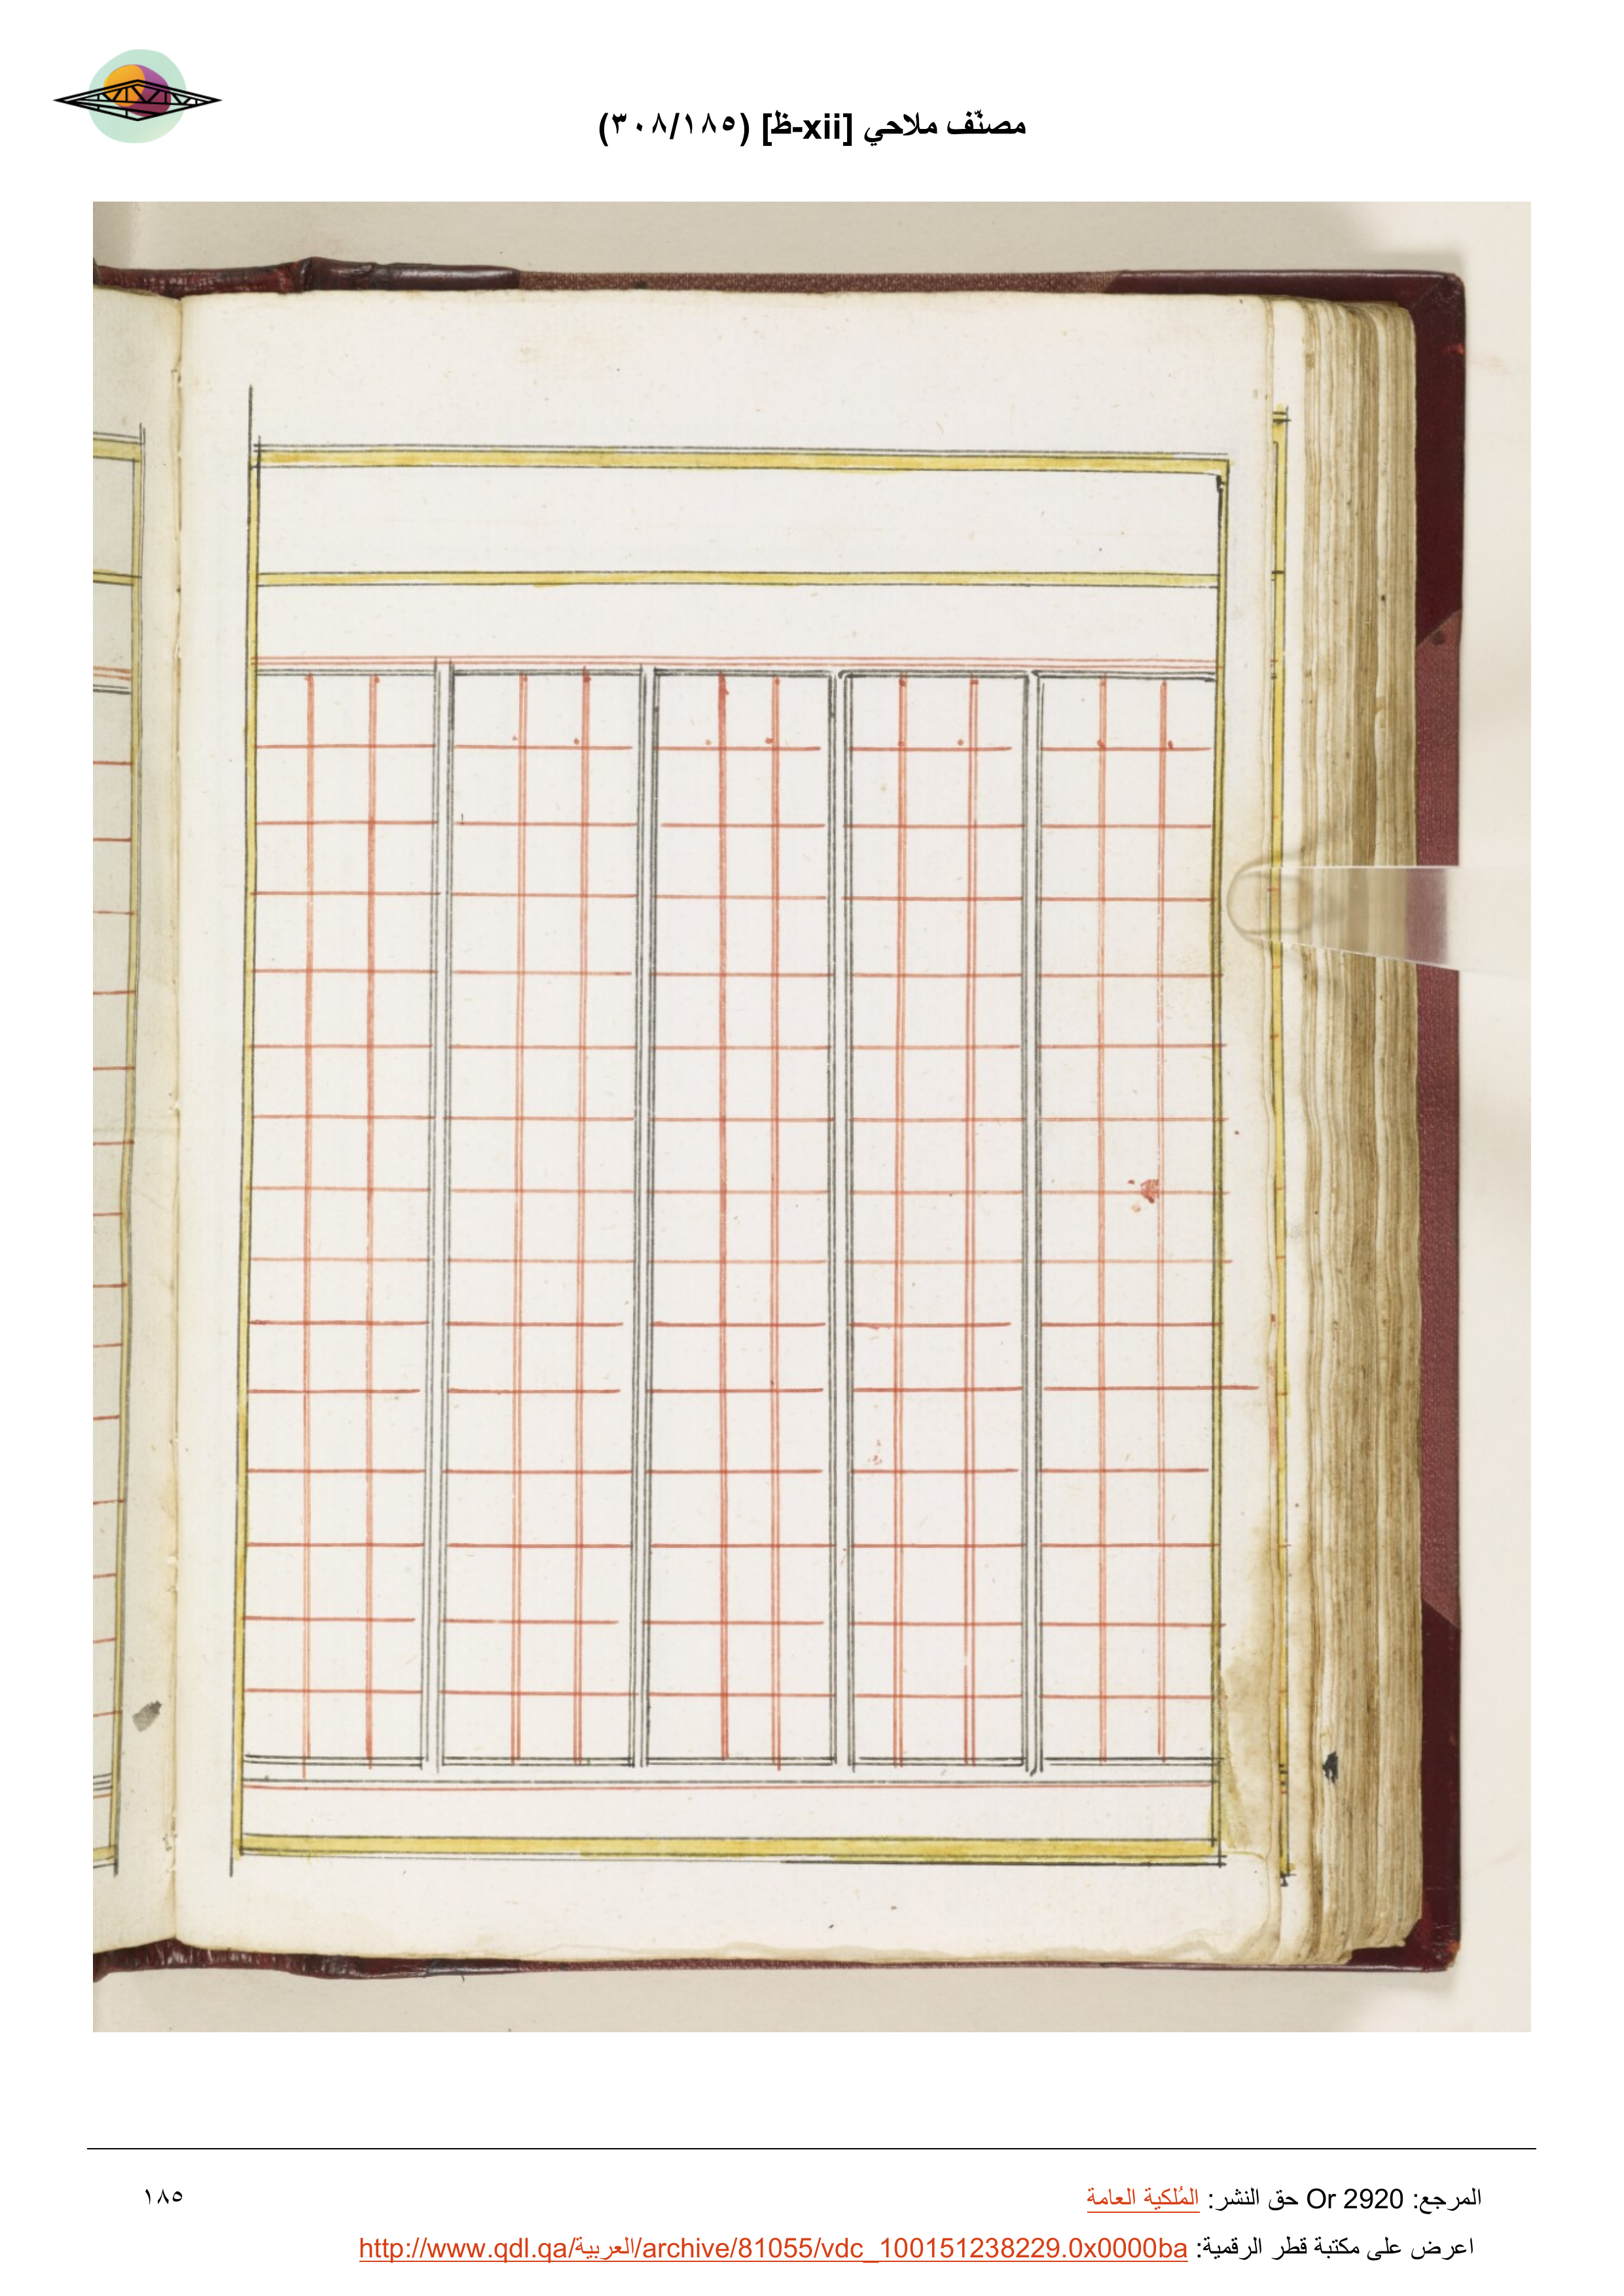 مصنّف ملاحي [xii-ظ] (١٨٥/٣٠٨)
المرجع: Or 2920 حق النشر: المُلكية العامة
١٨٥
اعرض على مكتبة قطر الرقمية: http://www.qdl.qa/العربية/archive/81055/vdc_100151238229.0x0000ba